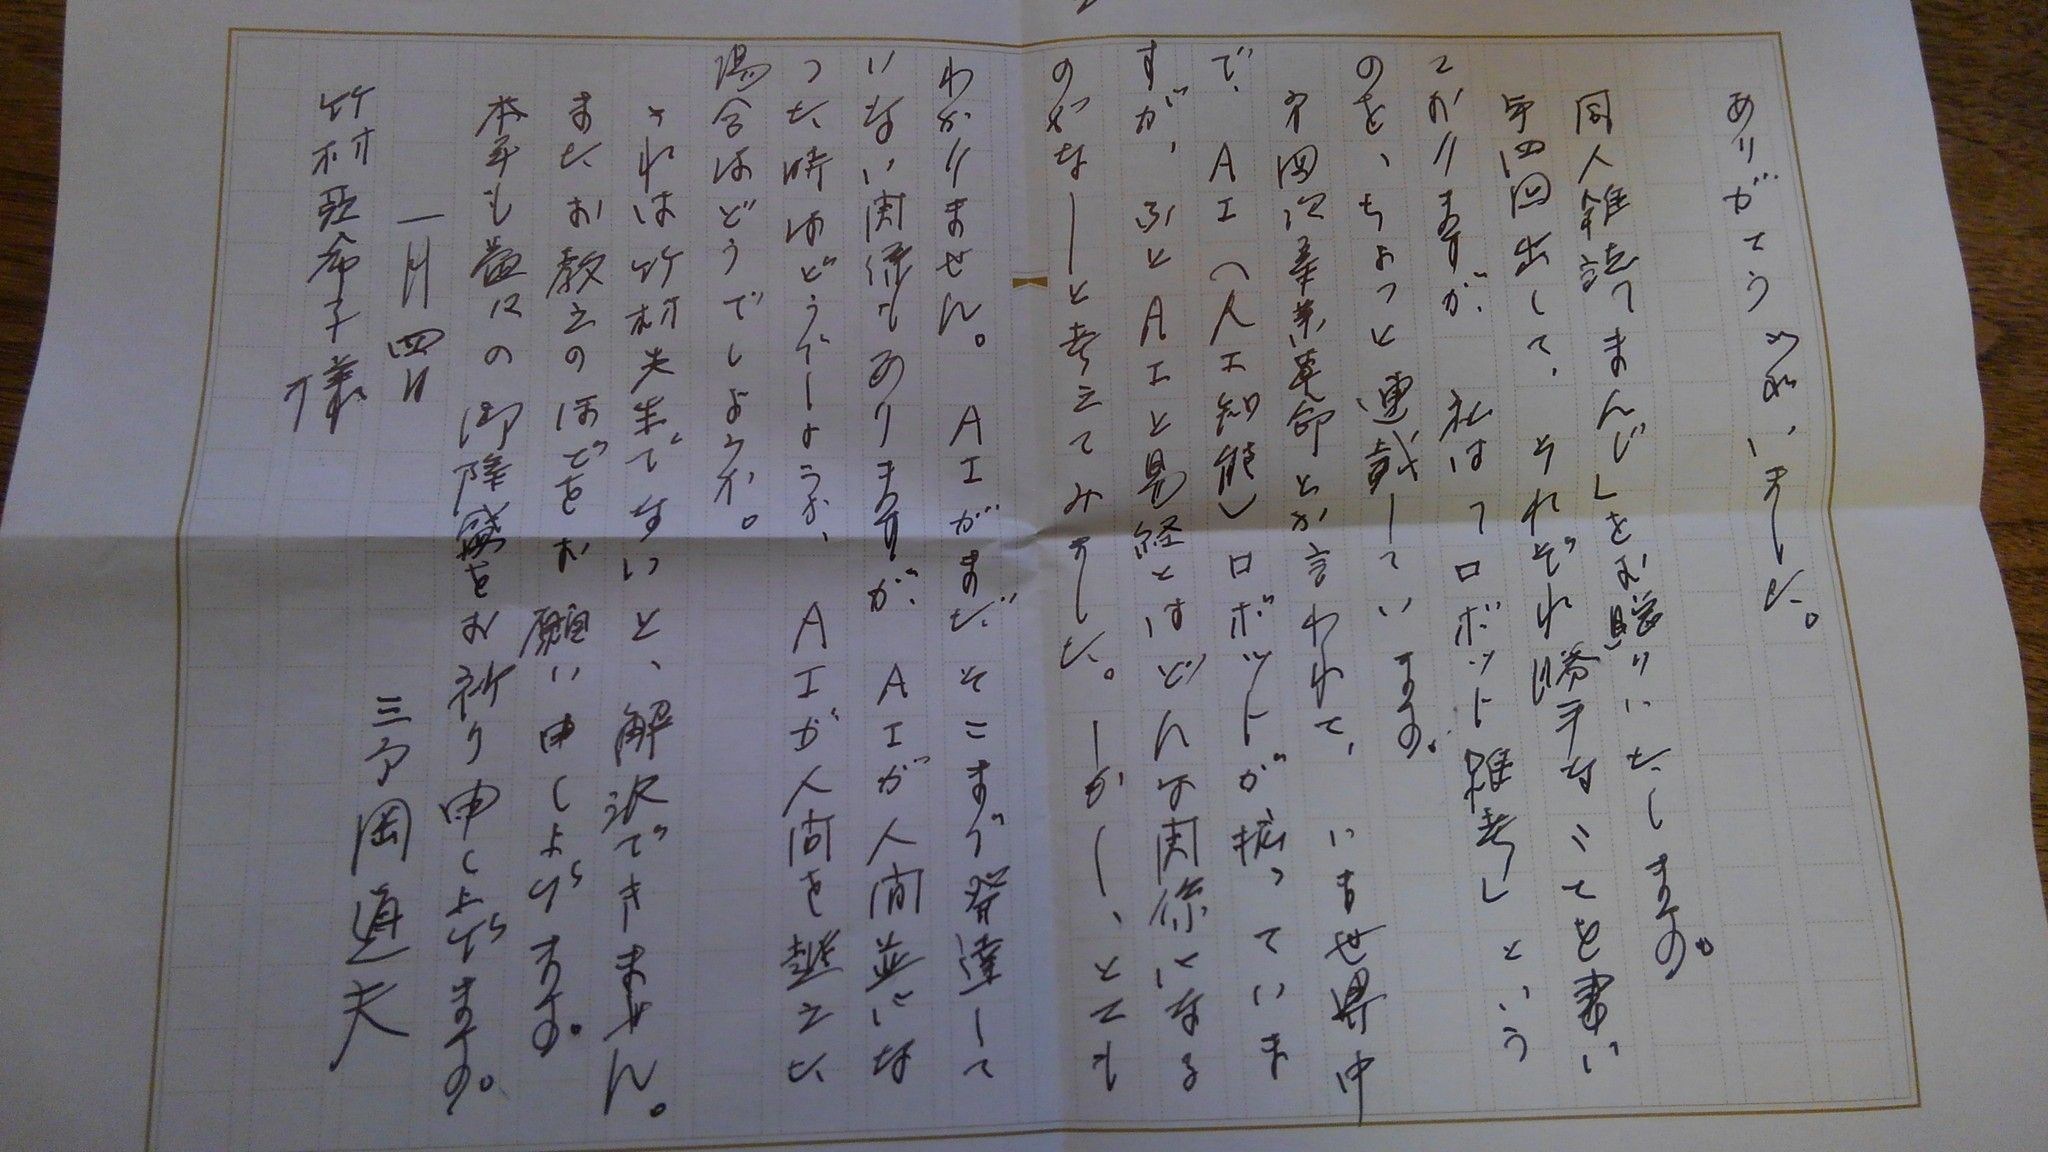 ありがとうございました。
同人雑誌「まんじ」をお贈りいたします。
年四回出して、それぞれ勝手なことを書い
ておりますが、私は「ロボット雑考」という
のを、ちょっと連載しています。
才四次産業革命とか言われて、いま世界中
で、AI（人工知能）ロボットが拡っていま
すが、ふとAIと易経とはどんな関係になる
のかなーと考えてみました。しかし、とても
わかりません。AIがまだそこまで発達して
いない関係もありますが、AIが人間並にな
った時はどうでしょうか、AIが人間を越えた
場合はどうでしょうか。
これは竹村先生でないと、解決できません。
またお教えのほどをお願い申し上げます。
本年も益々の御隆盛をお祈り申し上げます。
一月四日
三戸岡道夫
竹村亞希子様